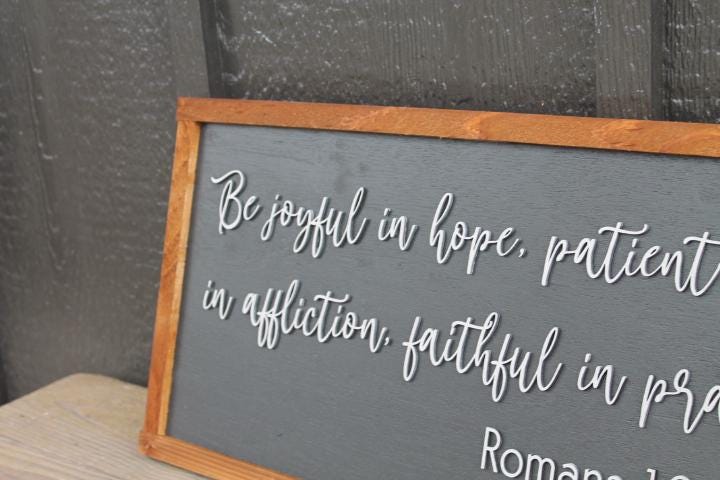 Be joyful in hope, patient
in affliction, faithful in
Romans